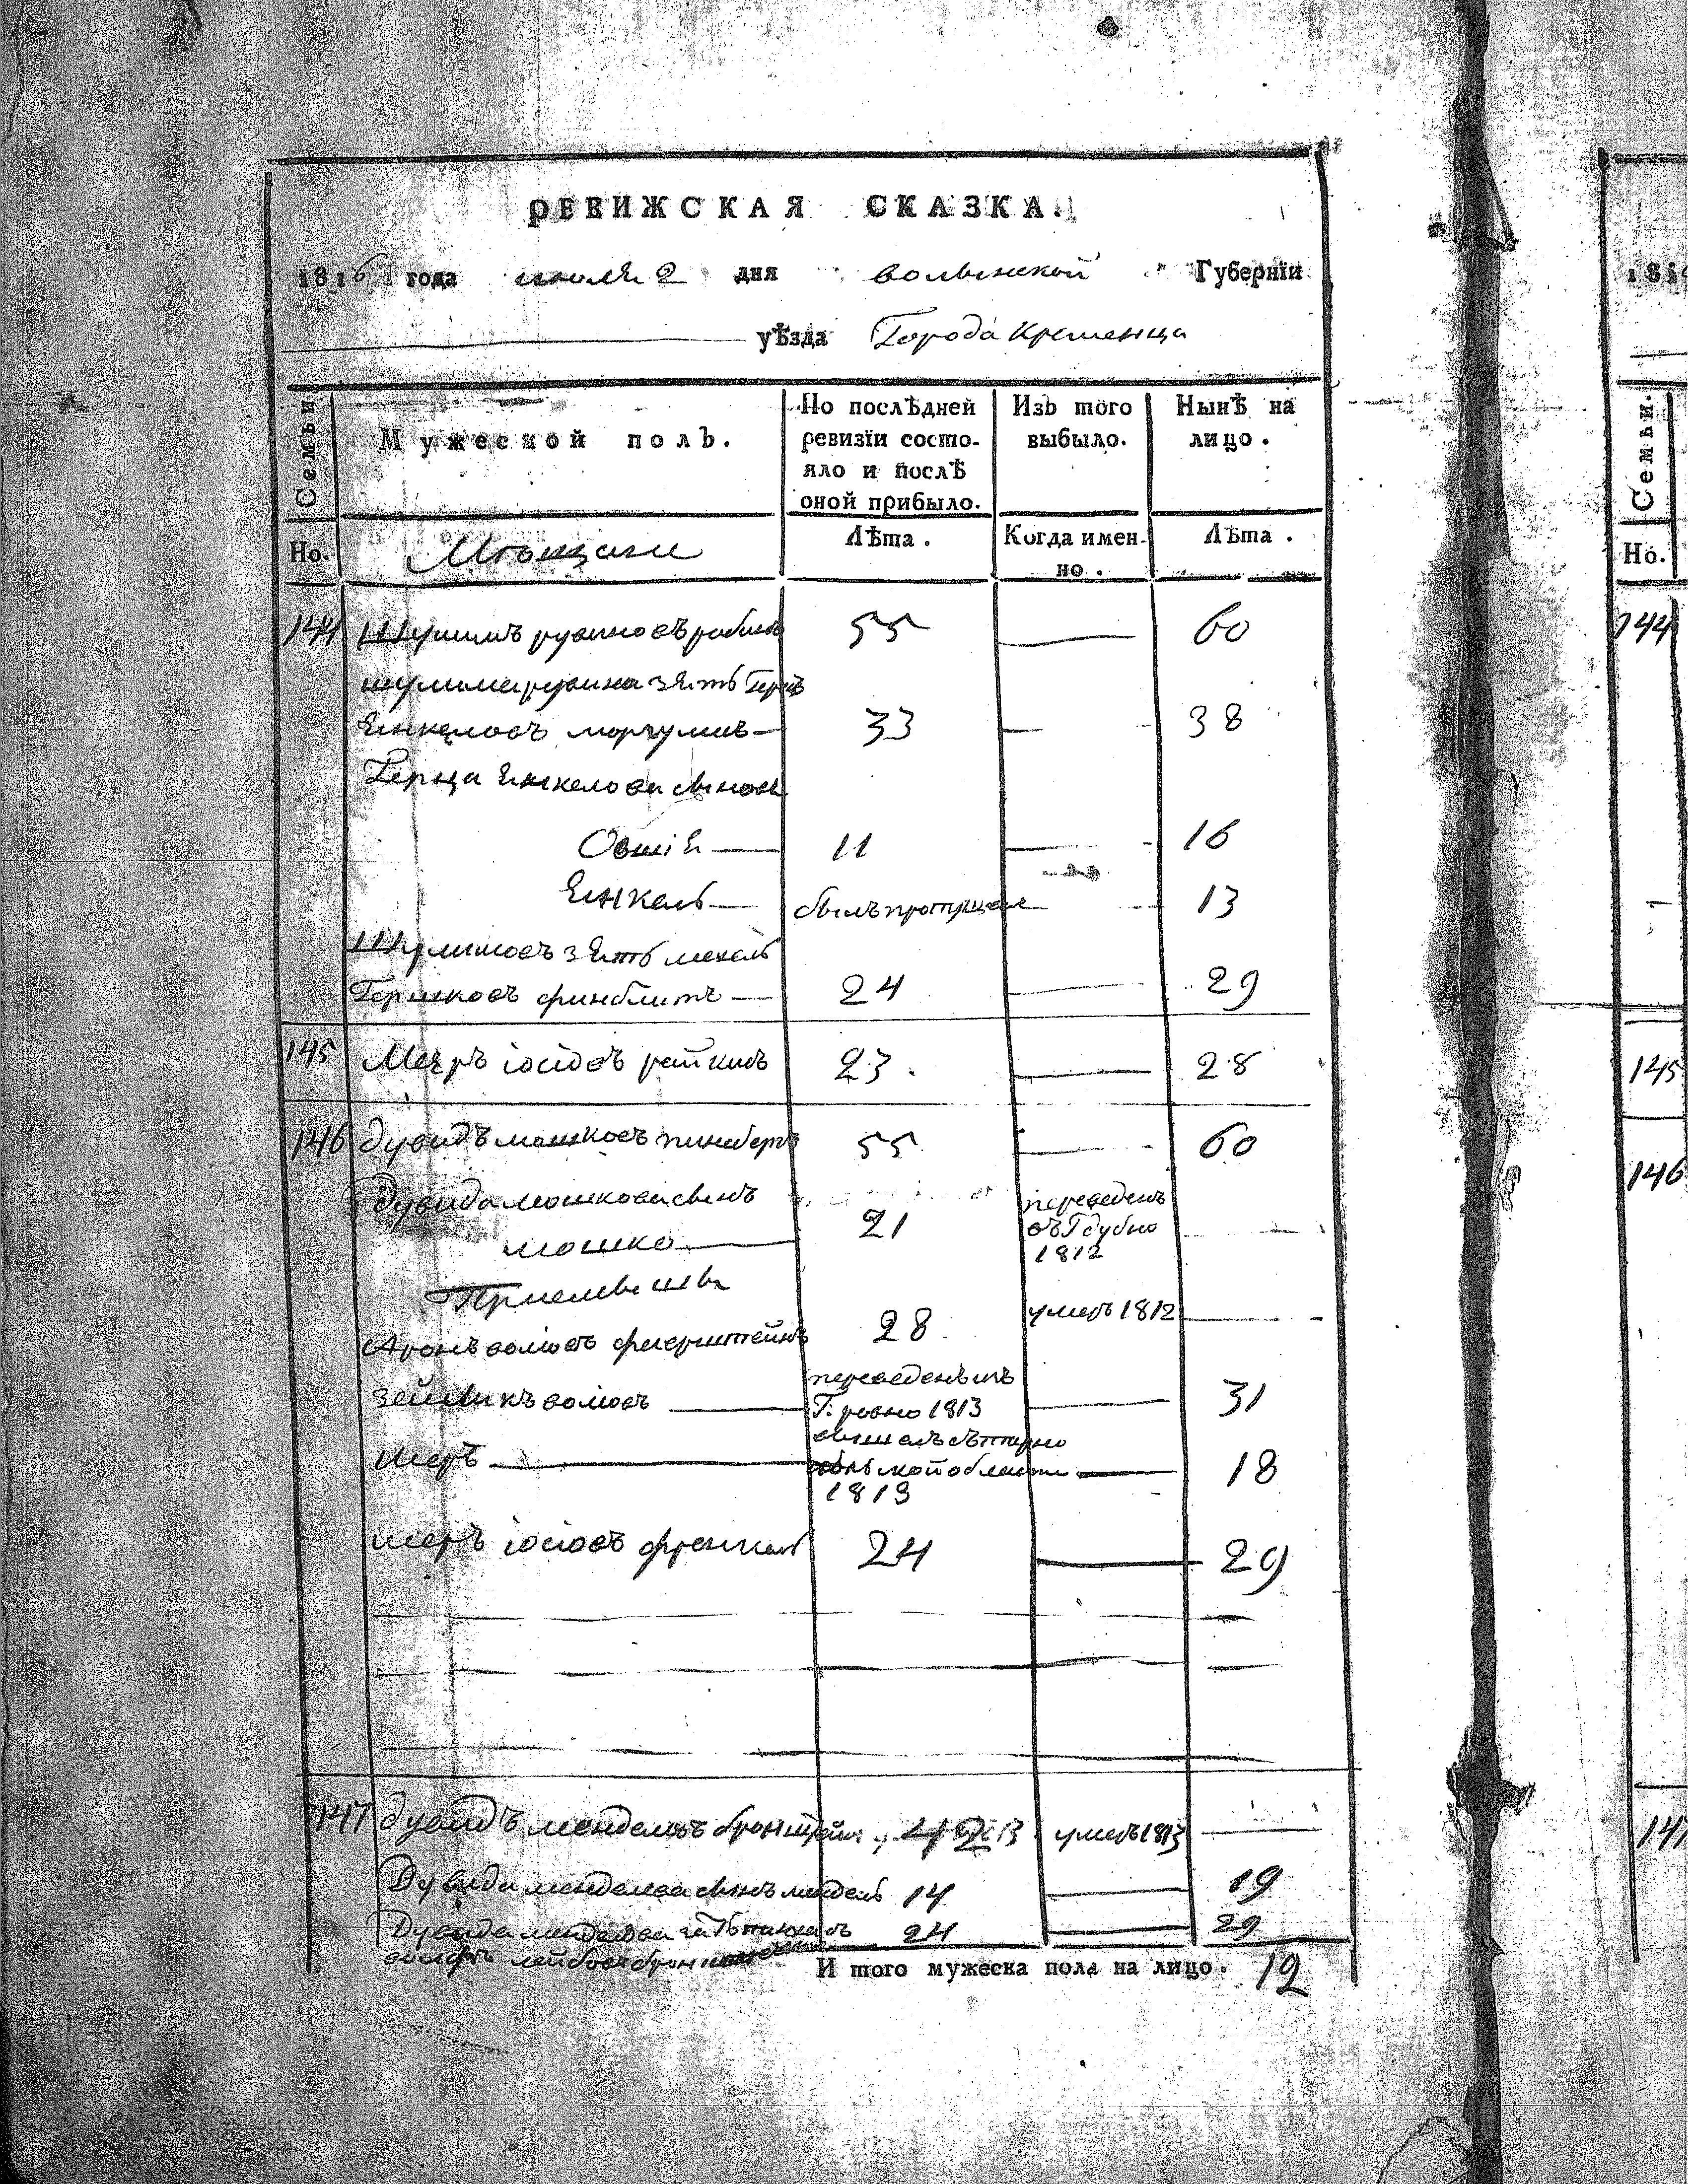 РЕВИЖСКАЯ СКАЗКА.
1816 года июля 2 дня волынской Губернїи
уѣзда Города Кременца
Семьи
Мужеской полъ.
По послѣдней ревизїи состо-
яло и послѣ
оной прибыло.
Изъ того
выбыло.
Нынѣ на
лицо.
Но.
Мѣщане
Лѣта.
Когда имен-
но.
Лѣта.
144 Шулимъ рувиновъ 55 60
шулима рувина зять Герцъ
Енкеловъ 33 38
Герца Енкелова сыновья
Овшія 11 16
Енкель былъ пропущенъ 13
Шулимовъ зять мехель
Гершковъ финблитъ 24 29
145 Меэръ іосіовъ 23. 28
146 дувидъ мошковъ 55 60
дувида мошкова сынъ
мошко 21
переведенъ
въ Г дубно
1812
Приемыши
Аронъ волфовъ 28 умеръ 1812
зейликъ волфовъ
переведенъ изъ
Г. ровно 1813
31
меръ
1813
18
меръ іосіовъ френкель 24 29
147 дувидъ менделевъ бронштейнъ 42 умеръ 1813
Дувида менделева сынъ мендель 14 19
Дувида менделева зять 24 29
И того мужеска пола на лицо. 12
1816
Семьи.
Но.
144
145
146
147